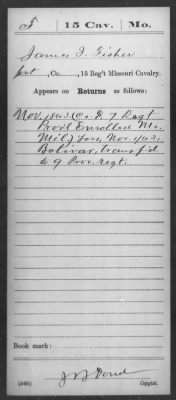 F | 15 Cav. | Mo.
James J. Fisher
Pvt, Co. , 15 Reg't Missouri Cavalry.
Appears on Returns as follows:
Nov. 1863 (Co. E. 7 Regt
Prov'l Enrolled Mo.
Mil.) Nov. 1863,
Bolivar, transf'd
to 9 Prov. regt.
Book mark:
(546) Copyist.